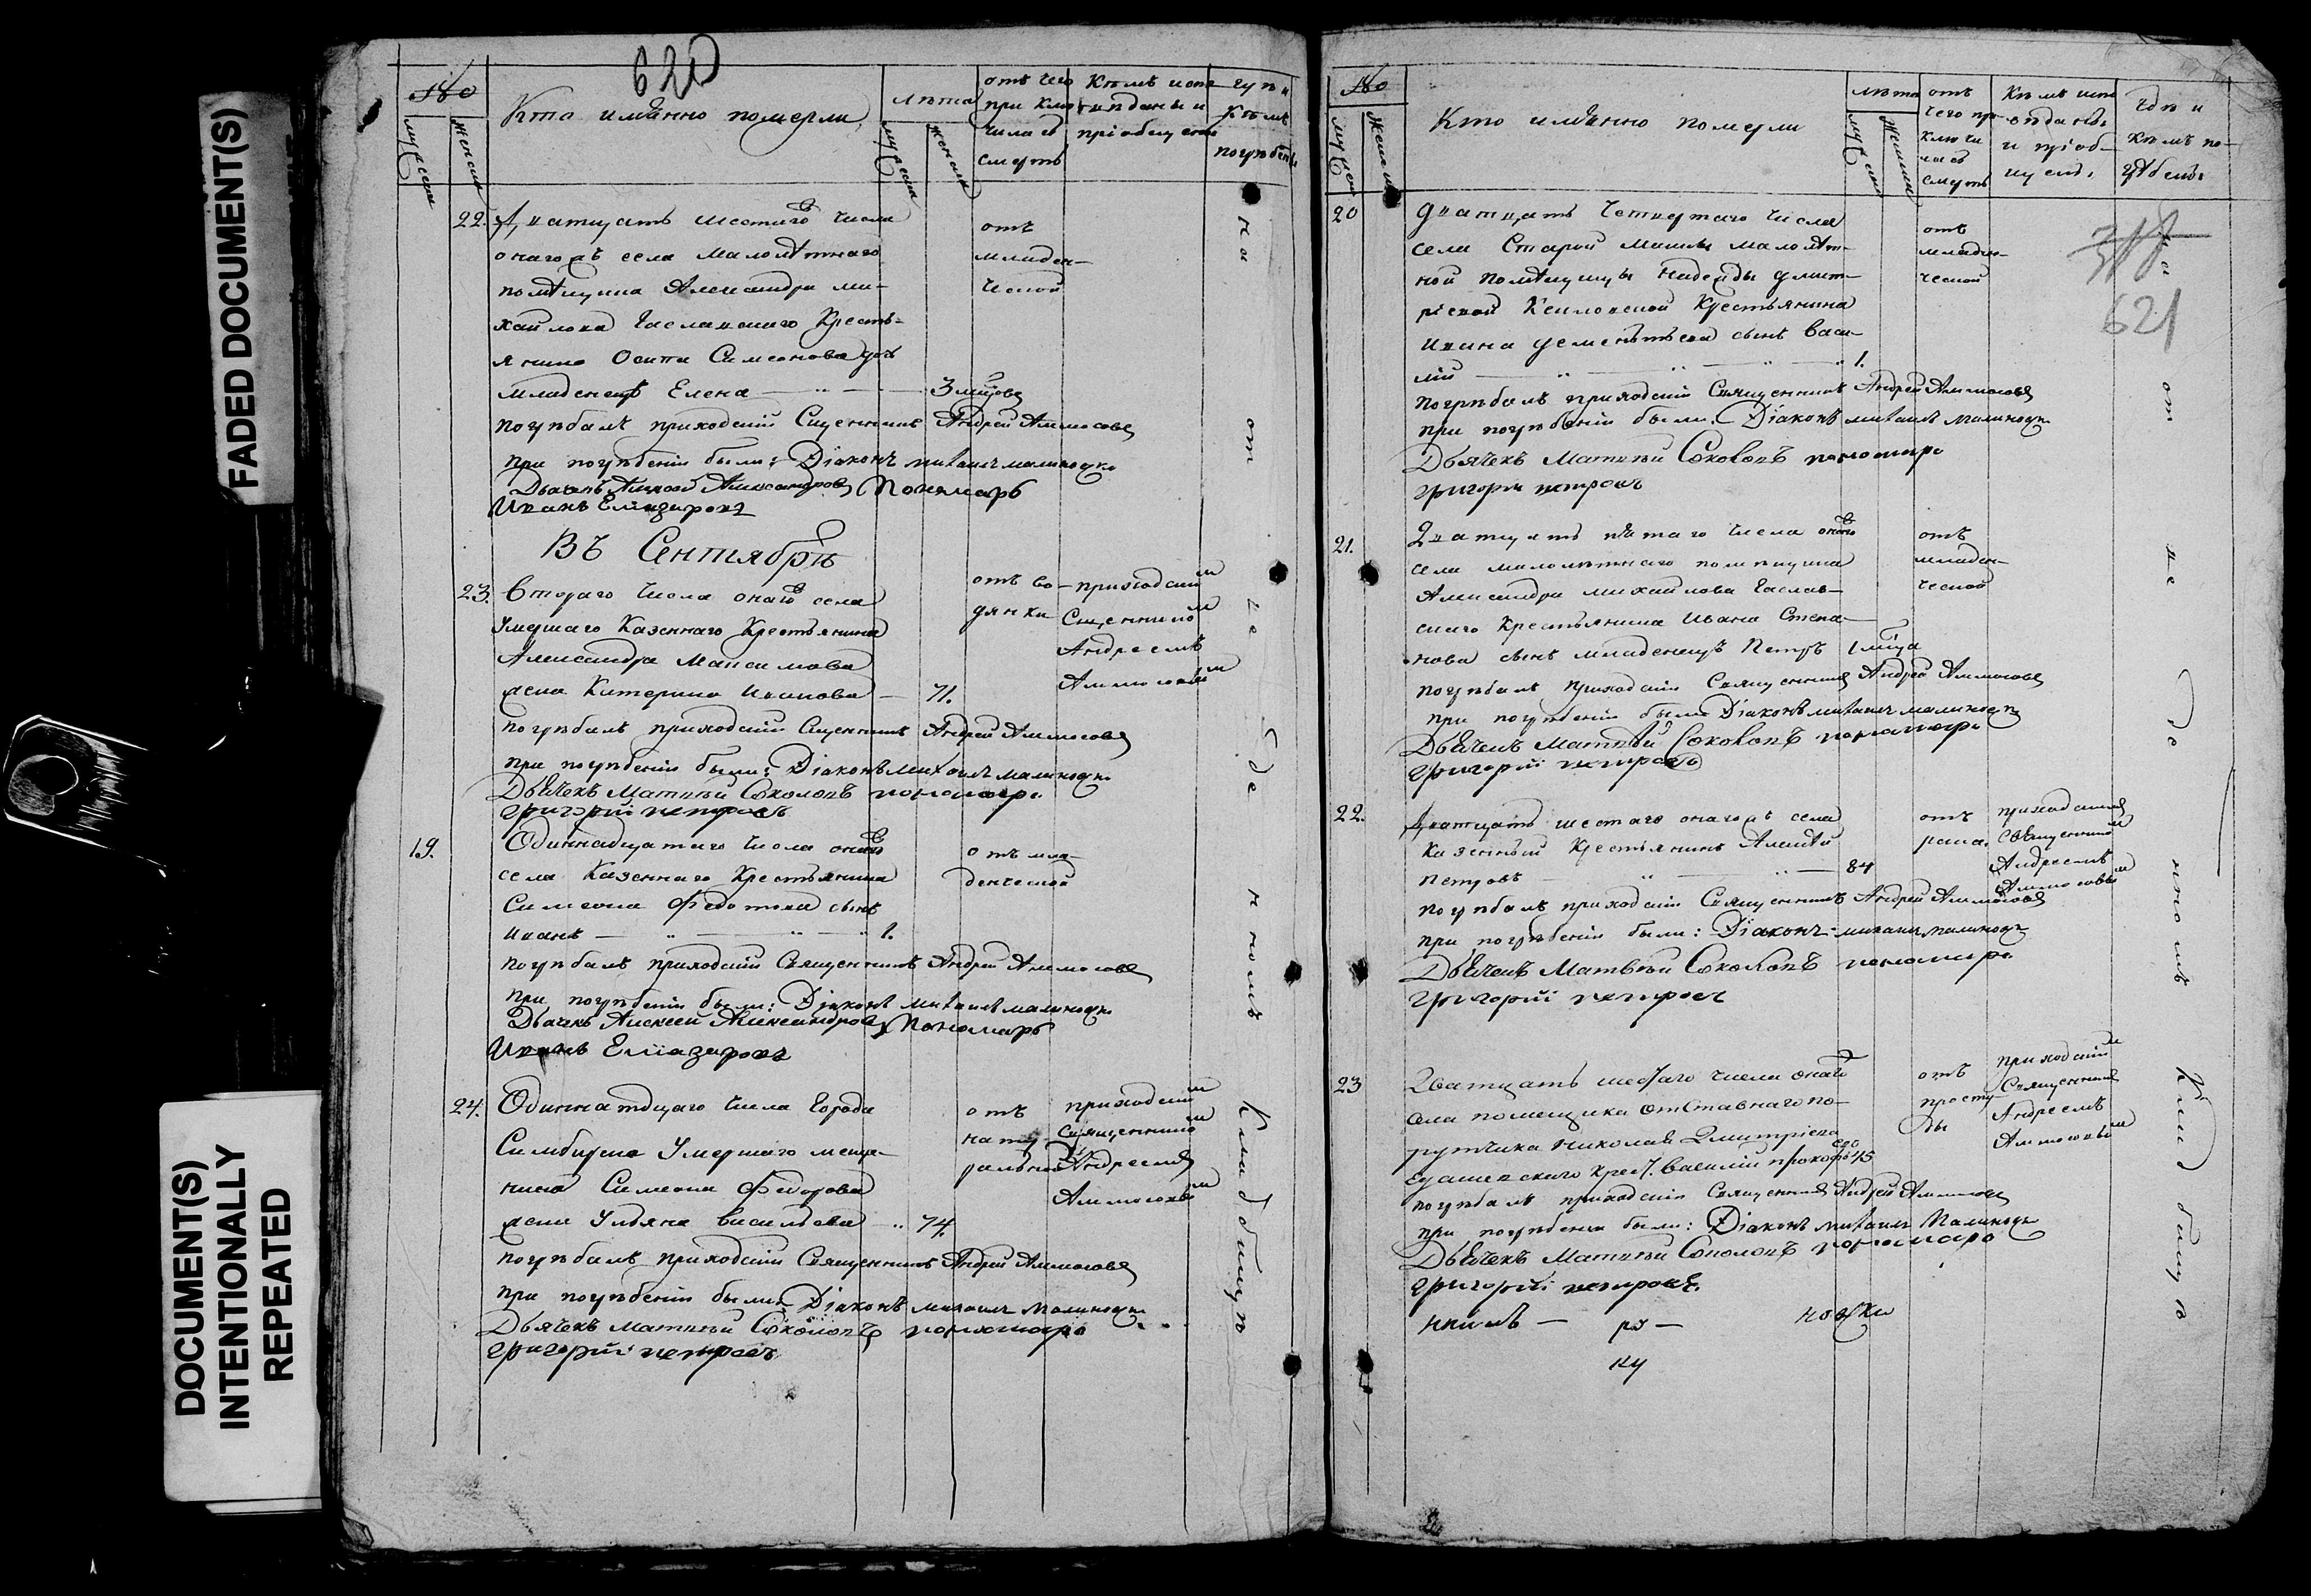 FADED DOCUMENT(S)
DOCUMENT(S)
INTENTIONALLY
REPEATED
620
Кто имянно померли
лѣта
отъ чего
при клю
чилась
смерть
Кѣмъ испо
вѣданы и
пріобщены
гдѣ и
кѣмъ
погребены
22. Дватцать шестаго числа
онагожъ села малолѣтнаго
помѣщика Александра ми-
хайлова Крестъ-
янина Осипа Симеонова дочь
младенецъ Елена 3 мцовъ
отъ
младен-
ческой
погребалъ приходскій Сщенникъ Андрей Аммосовъ
при погребеніи были: Діаконъ михаилъ малиновск.
Дьячекъ Алексей Александровъ Пономарь
Иванъ Елиазаровъ
Въ Сентябрѣ
23. Втораго числа онаго села
умершаго Казеннаго Крестьянина
Александра Максимова
жена Катерина Иванова 71.
отъ во-
дянки
приходским
Сщенником
Андреемъ
Аммосовым
погребалъ приходскій Сщенникъ Андрей Аммосовъ
при погребеніи были: Діаконъ михаилъ малиновск.
Дьячекъ Матвей Соколовъ пономарь
григорій петровъ
19. Одиннадцатаго числа онаго
села Казеннаго Крестьянина
Симеона Федотова сынъ
Иванъ 1.
отъ мла-
денческой
погребалъ приходскій Священникъ Андрей Аммосовъ
при погребеніи были: Діаконъ михаилъ малиновск.
Дьячекъ Алексей Александровъ Пономарь
Иванъ Елиазаровъ
24. Одиннатцаго числа Города
Симбирска умершаго меща-
нина Симеона Федорова
жена Ульяна Васильева 74.
отъ
нату-
ральной
приходским
Священником
Андреемъ
Аммосовым
погребалъ приходскій Священникъ Андрей Аммосовъ
при погребеніи были: Діаконъ михаилъ малиновск.
Дьячекъ Матвей Соколовъ пономарь
григорій петровъ
на отведенномъ Кладбищѣ
Кто имянно померли
лѣта
отъ
чего пр-
ключи
лась
смерть
Кѣмъ испо
вѣданы
и пріоб-
щены
гдѣ и
кѣмъ по-
гребены
621
20 дватцать четвертаго числа
села Старой малолѣт-
ной помѣщицы Надежды дмит-
ріевой Крестьянина
Ивана дементьева сынъ васи-
лій 1.
отъ
младен-
ческой
погребалъ приходскій Священникъ Андрей Аммосовъ
при погребеніи были: Діаконъ михаилъ малиновск.
Дьячекъ Матвей Соколовъ пономарь
григорій петровъ
21. Дватцать пятаго числа онаго
села малолѣтнаго помѣщика
Александра михайлова
Крестьянина Ивана Степа-
нова сынъ младенецъ Петръ 1 мца
отъ
младен-
ческой
погребалъ приходскій Священникъ Андрей Аммосовъ
при погребеніи были Діаконъ михаилъ малиновск.
Дьячекъ Матвей Соколовъ пономарь
григорій петровъ
22. Дватцать шестаго онагожъ села
Казенный Крестьянинъ Алексѣй
Петровъ 84
отъ
рака.
приходским
Священником
Андреемъ
Аммосовым
погребалъ приходскій Священникъ Андрей Аммосовъ
при погребеніи были: Діаконъ михаилъ малиновск.
Дьячекъ Матвей Соколовъ пономарь
григорій петровъ
23 Дватцать шестаго числа онаго
села помещика отставнаго по-
рутчика Николая Дмитріева
крест. Василій прокофьев 45
отъ
просту-
ды
приходским
Священником
Андреемъ
Аммосовым
погребалъ приходскій Священникъ Андрей Аммосовъ
при погребеніи были: Діаконъ михаилъ Малиновск.
Дьячекъ Матвей Соколовъ пономарь
григорій петровъ.
на отведенномъ Кладбищѣ